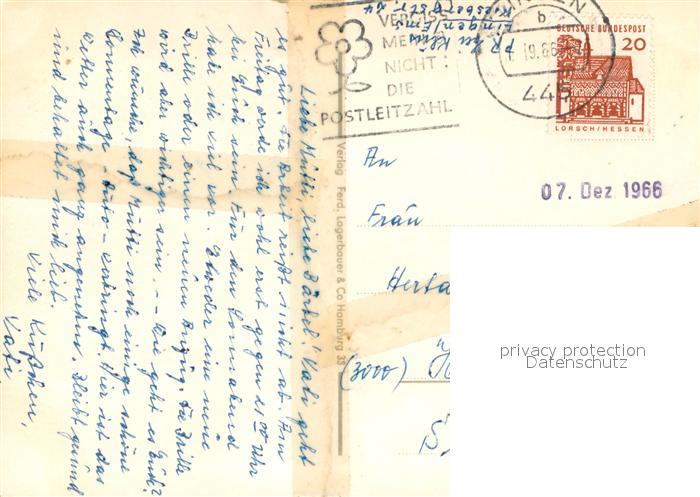 Liebe Mutti, liebe Bärbel! Vati geht
es gut. Die Arbeit reißt nicht ab. Am
Freitag werde ich wohl erst gegen 21 00 Uhr
bei Euch sein. Für den Sonnabend
habe ich viel vor. Entweder eine neue
Brille oder einen neuen Anzug. Die Brille
wird aber wichtiger sein. - Wie geht es Euch?
Ich wünsche, daß Mutti noch einige schöne
Sonnentage verbringt. Hier ist das
Wetter auch ganz angenehm. Bleibt gesund
und behaltet mich lieb.
Viele Küßchen,
Vati
Verlag Ferd. Lagerbauer & Co Hamburg 33
Lingen/Ems
VERGISS
MEIN
NICHT
DIE
POSTLEITZAHL
LINGEN
b
445
DEUTSCHE BUNDESPOST
20
LORSCH/HESSEN
07. Dez. 1966
An
Frau
Herta
(3000)
privacy protection
by oldthing.de